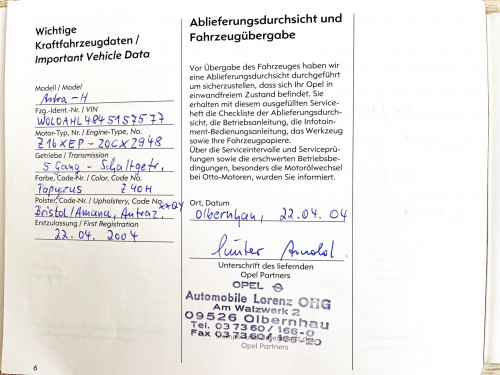 Wichtige
Kraftfahrzeugdaten /
Important Vehicle Data
Modell / Model
Astra-H
Fzg.-Ident.-Nr. / VIN
WOLOAHL4845157577
Motor-Typ, Nr. / Engine-Type, No.
Z16XEP - 20CX2948
Getriebe / Transmission
5 Gang - Schaltgetr.
Farbe, Code-Nr. / Color, Code No.
Papyrus Z40H
Polster, Code-Nr. / Upholstery, Code No.
Bristol/Amana, Antraz.
Erstzulassung / First Registration
22.04. 2004
6
Ablieferungsdurchsicht und
Fahrzeugübergabe
Vor Übergabe des Fahrzeuges haben wir
eine Ablieferungsdurchsicht durchgeführt
um sicherzustellen, dass sich Ihr Opel in
einwandfreiem Zustand befindet. Sie
erhalten mit diesem ausgefüllten Service-
heft die Checkliste der Ablieferungsdurch-
sicht, die Betriebsanleitung, die Infotain-
ment-Bedienungsanleitung, das Werkzeug
sowie Ihre Fahrzeugpapiere.
Über die Serviceintervalle und Serviceprü-
fungen sowie die erschwerten Betriebsbe-
dingungen, besonders die Motorölwechsel
bei Otto-Motoren, wurden Sie informiert.
Ort, Datum
Olbernhau, 22.04.04
Günter Arnold
Unterschrift des liefernden
Opel Partners
OPEL
Automobile Lorenz OHG
Am Walzwerk 2
09526 Olbernhau
Tel. 037360/166-0
Fax 037360/166-20
Opel Partners